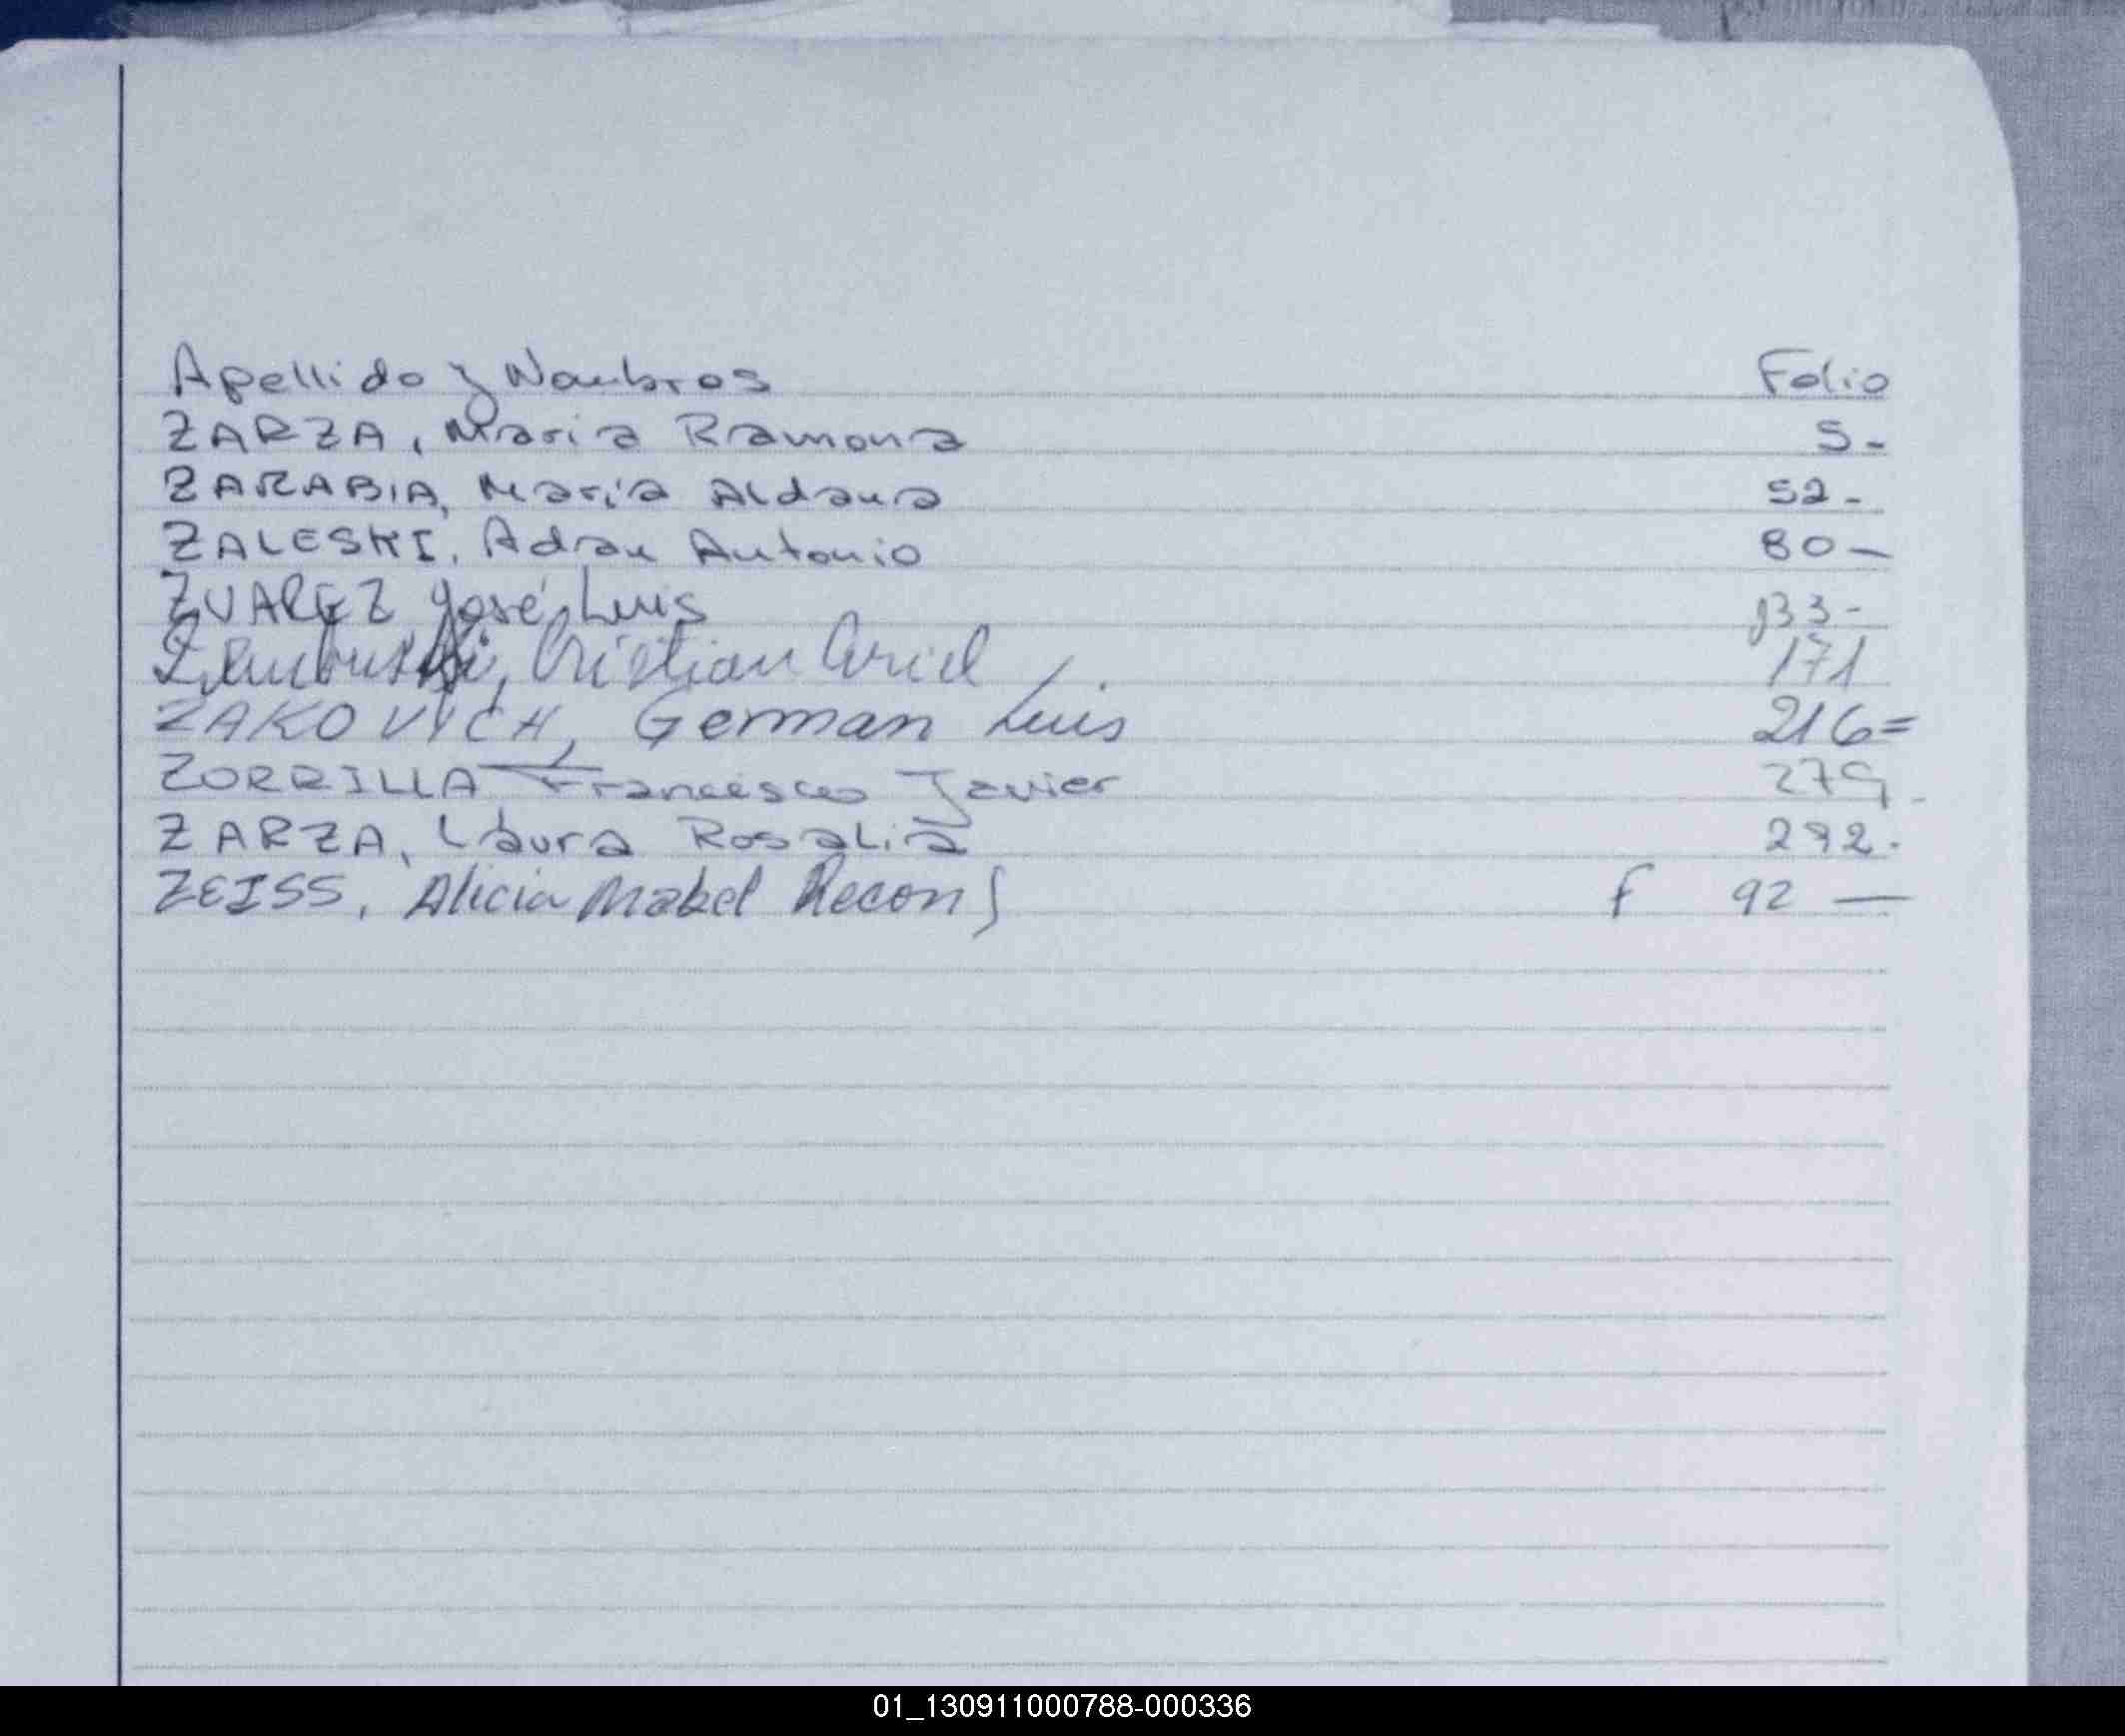 Apellido y Nombres Folio
ZARZA, Maria Ramona 5-
ZARABIA, Maria Aldana 52-
ZALESKI, Adran Antonio 80-
ZUAREZ José Luis 133-
Cristian Ariel 171
ZAKOVICH, German Luis 216=
ZORRILLA Francisco Javier 279-
ZARZA, Laura Rosalia 292.
ZEISS, Alicia Mabel Recon F 92 —
01_130911000788-000336